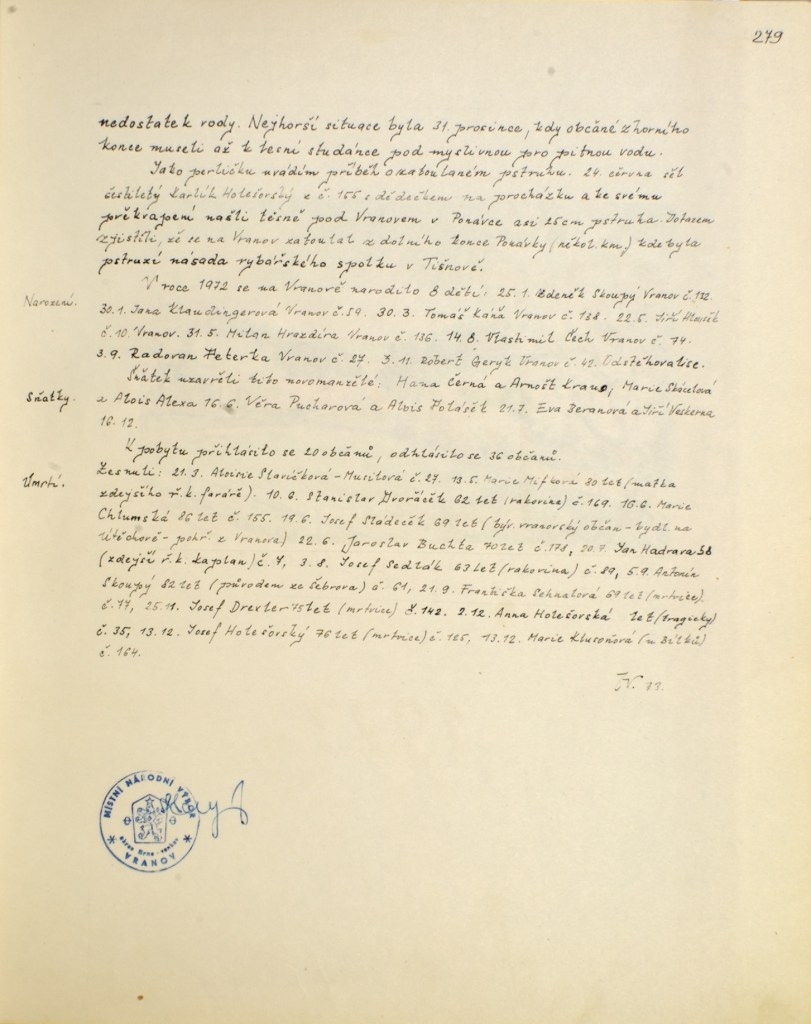 279
nedostatek vody. Nejhorší situace byla 31. prosince, kdy občané z horního
konce museli až k lesní studánce pod myslivnou pro pitnou vodu.
Jako perličku uvádím příběh o zatoulaném pstruhu. 24. června šel
šestiletý Karlík Holešovský z č. 155 s dědečkem na procházku a ke svému
překvapení našli těsně pod Vranovem v Ponávce asi 25cm pstruha. Dotazem
zjistili, že se na Vranov zatoulal z dolního konce Ponávky (někol. km,) kde byla
pstruzí násada rybářského spolku v Tišnově.
Narození.
V roce 1972 se na Vranově narodilo 8 dětí: 25.1. Zdeněk Skoupý Vranov č. 112.
30.1. Jana Klaudingerová Vranov č. 59. 30.3. Tomáš Káňa Vranov č. 138. 22.5. Jiří
č. 10. Vranov. 31.5. Milan Hrazdíra Vranov č. 136. 14.8. Vlastimil Čech Vranov č. 74.
3.9. Radovan Peterka Vranov č. 27. 3.11. Robert Geryk Vranov č. 49. Odstěhovali se.
Sňatky.
Sňatek uzavřeli tito novomanželé: Hana Černá a Arnošt Kraus, Marie Skácelová
a Alois Alexa 16.6. Věra Pucharová a Alois Polášek 21.7. Eva Beranová a Jiří Veškrna
16.12.
K pobytu přihlásilo se 20 občanů, odhlásilo se 36 občanů.
Úmrtí.
Zesnuli: 21.3. Aloisie Slavíčková - Musilová č. 27. 13.5. Marie Mifková 80 let (matka
zdejšího ř. k. faráře). 10.6. Stanislav Dvořáček 62 let (rakovina) č. 169. 16.6. Marie
Chlumská 86 let č. 155. 19.6. Josef Sládeček 69 let (býv. vranovský občan - bydl. na
Útěchově - pohř. z Vranova) 22.6. Jaroslav Buchta 70 let č. 178, 20.7. Jan Hadrava 58
(zdejší ř. k. kaplan) č. 7, 3.8. Josef Sedlák 63 let (rakovina) č. 89, 5.9. Antonín
Skoupý 82 let (původem ze Šebrova) č. 61, 21.9. Františka Sehnalová 69 let (mrtvice)
č. 77, 25.11. Josef Drexler 75 let (mrtvice) č. 142. 2.12. Anna Holešovská let (tragicky)
č. 35, 13.12. Josef Holešovský 76 let (mrtvice) č. 125, 13.12. Marie Klusoňová (u Bílků)
č. 164.
73.
MÍSTNÍ NÁRODNÍ VÝBOR
okres Brno-venkov
VRANOV